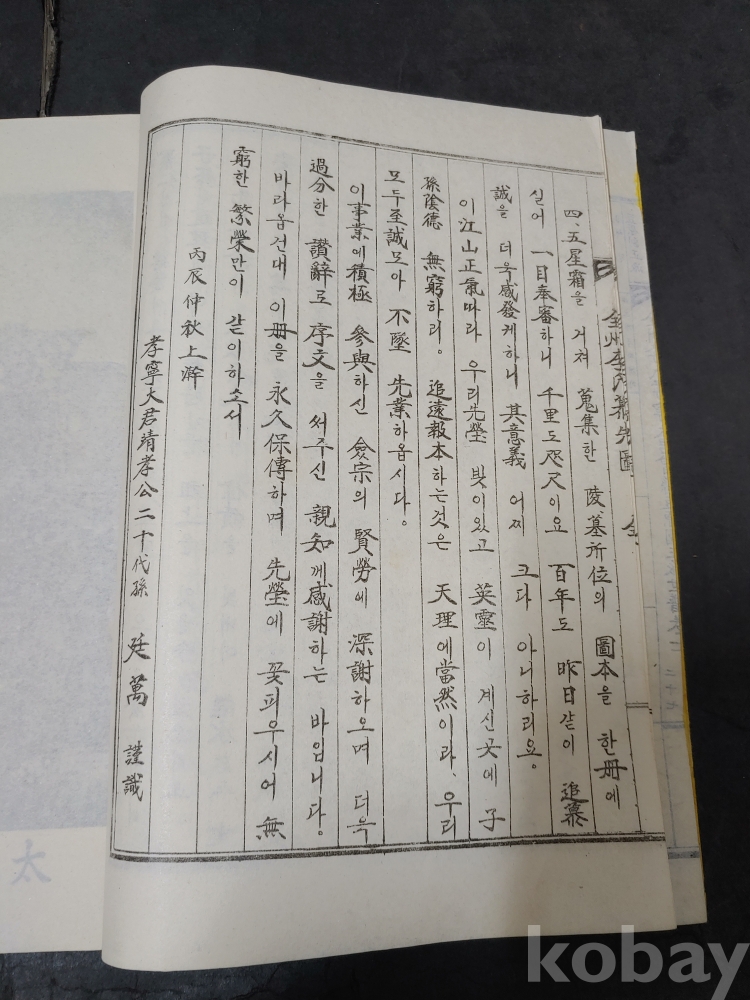 全州李氏墓先圖 全
四、五星霜을 거쳐 蒐集한 陵墓所位의 圖本을 한册에
실어 一目奉審하니 千里도 咫尺이요 百年도 昨日같이 追慕
誠을 더욱感發게하니 其意義 어찌 크다 아니하리요。
이江山正氣따라 우리先塋 빛이있고 英靈이 계신곳에 子
孫陰德 無窮하리。 追遠報本하는것은 天理에當然이라、 우리
모두至誠모아 不墜 先業하옵시다。
이事業에積極 參與하신 僉宗의 賢勞에 深謝하오며 더욱
過分한 讚辭로 序文을 써주신 親知께感謝하는 바입니다。
바라옵건대 이册을 永久保傳하며 先塋에 꽃피우시어 無
窮한 繁榮만이 같이하소서
丙辰仲秋上澣
孝寧大君靖孝公二十代孫 廷萬 謹識
太
kobay